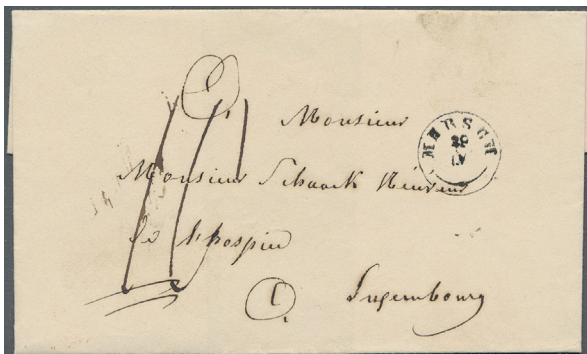 Monsieur
MERSCH
29
IV
Monsieur Schaack
de l'hospice
Luxembourg